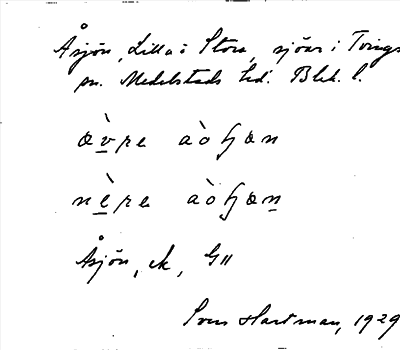 Åsjön, Lilla o Stora, sjöar i Tvings
sn. Medelstads hd. Blek. l.
æ̀v̲re aòʃæn
nè̲re aòʃæn̲
Åsjön, ek, G11
Sven Hartman, 1929